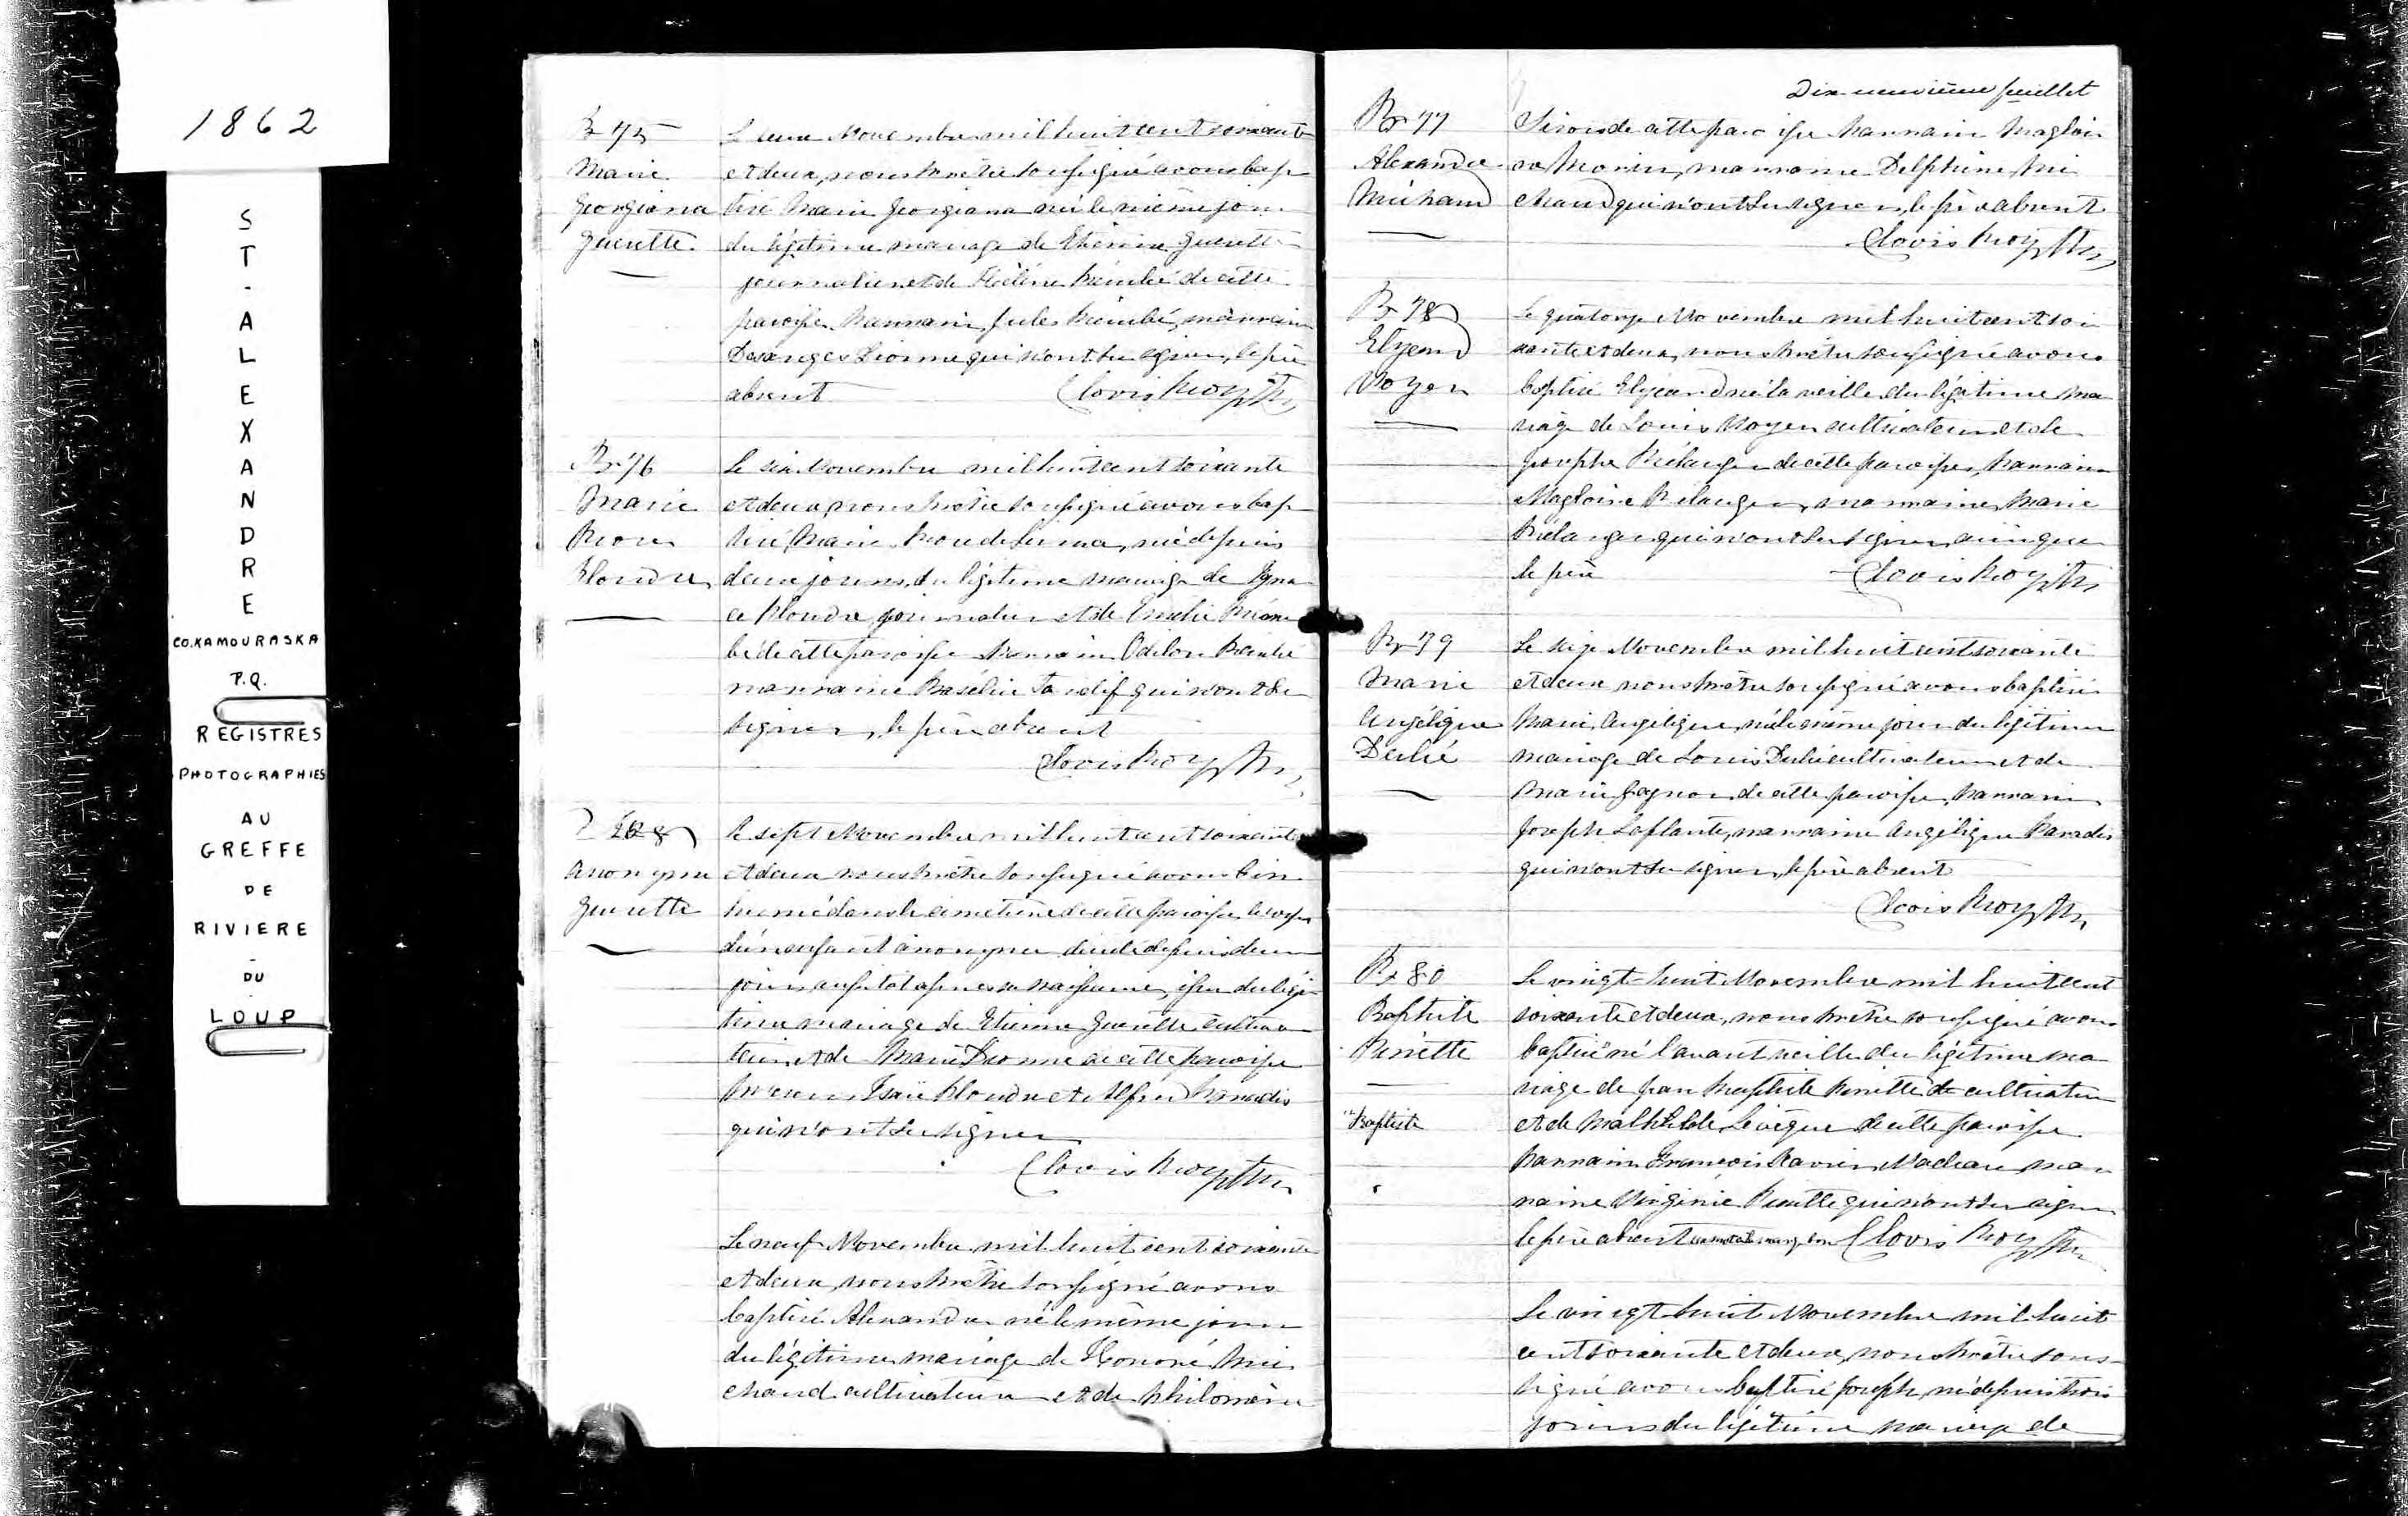 1862
ST-ALEXANDRE
CO. KAMOURASKA
P.Q.
REGISTRES
PHOTOGRAPHIES
AU
GREFFE
DE
RIVIERE
-
DU
LOUP
B 75
Marie
Georgiana
Guerette
Le deux Novembre mil huit cent soixante
et deux, nous Prêtre soussigné avons bap
tisé Marie Georgiana née le même jour
du légitime mariage de Etienne Guerette
journalier et de Hélène Bérubé de cette
paroisse. Parrain Jules Bérubé, marraine
Desanges Dionne qui n'ont su signer, le père
absent Clovis Roy Ptre
B 76
Marie
Rose
Plourde
Le six Novembre mil huit cent soixante
et deux, nous Prêtre soussigné avons bap
tisé Marie Rose de Lima, née depuis
deux jours, du légitime mariage de Igna
ce Plourde journalier et de Emélie Béru
bé de cette paroisse Parrain Odilon Bérubé
marraine Baséline Tardif qui n'ont su
signer, le père absent
Clovis Roy Ptre
Anonyme
Guerette
Le sept Novembre mil huit cent soixante
et deux nous Prêtre soussigné avons in
humé dans le cimetière de cette paroisse le corps
d'un enfant anonyme décédé depuis deux
jours aussitôt après sa naissance, issu du légi
time mariage de Etienne Guerette cultiva
teur et de Marie Dionne de cette paroisse
Présences Isaïe Plourde et Alfred Paradis
qui n'ont su signer
Clovis Roy Ptre
Le neuf Novembre mil huit cent soixante
et deux, nous Prêtre soussigné avons
baptisé Alexandre né le même jour
du légitime mariage de Honoré Mi
chaud cultivateur et de Philomène
Dix-neuvième feuillet
B 77
Alexandre
Michaud
Sirois de cette paroisse Parrain Magloi
re Morin, marraine Delphine Mi
chaud qui n'ont su signer, le père absent
Clovis Roy Ptre
B 78
Elzeard
Voyer
Le quatorze Novembre mil huit cent soi
xante et deux, nous Prêtre soussigné avons
baptisé Elzéard né la veille du légitime ma
riage de Louis Voyer cultivateur et de
Josephe Bélanger de cette paroisse, Parrain
Magloire Bélanger, marraine Marie
Bélanger qui n'ont su signer, ainsi que
le père Clovis Roy Ptre
B 79
Marie
Angélique
Dubé
Le seize Novembre mil huit cent soixante
et deux nous Prêtre soussigné avons baptisé
Marie Angélique, née le même jour du légitime
mariage de Louis Dubé cultivateur et de
Marie Gagnon de cette paroisse, Parrain
Joseph Laplante, marraine Angélique Paradis
qui n'ont su signer, le père absent
Clovis Roy Ptre
B 80
Baptiste
Pinette
"Baptiste
Le vingt-huit Novembre mil huit cent
soixante et deux, nous Prêtre soussigné avons
baptisé" né l'avant veille du légitime ma
riage de Jean Baptiste Pinette cultivateur
et de Mathilde Levêque de cette paroisse
Parrain François Xavier Nadeau mar
raine Virginie Pinette qui n'ont su signer
le père absent Clovis Roy Ptre
Le vingt-huit Novembre mil huit
cent soixante et deux, nous Prêtre sous
signé avons baptisé Joseph, né depuis trois
jours du légitime mariage de